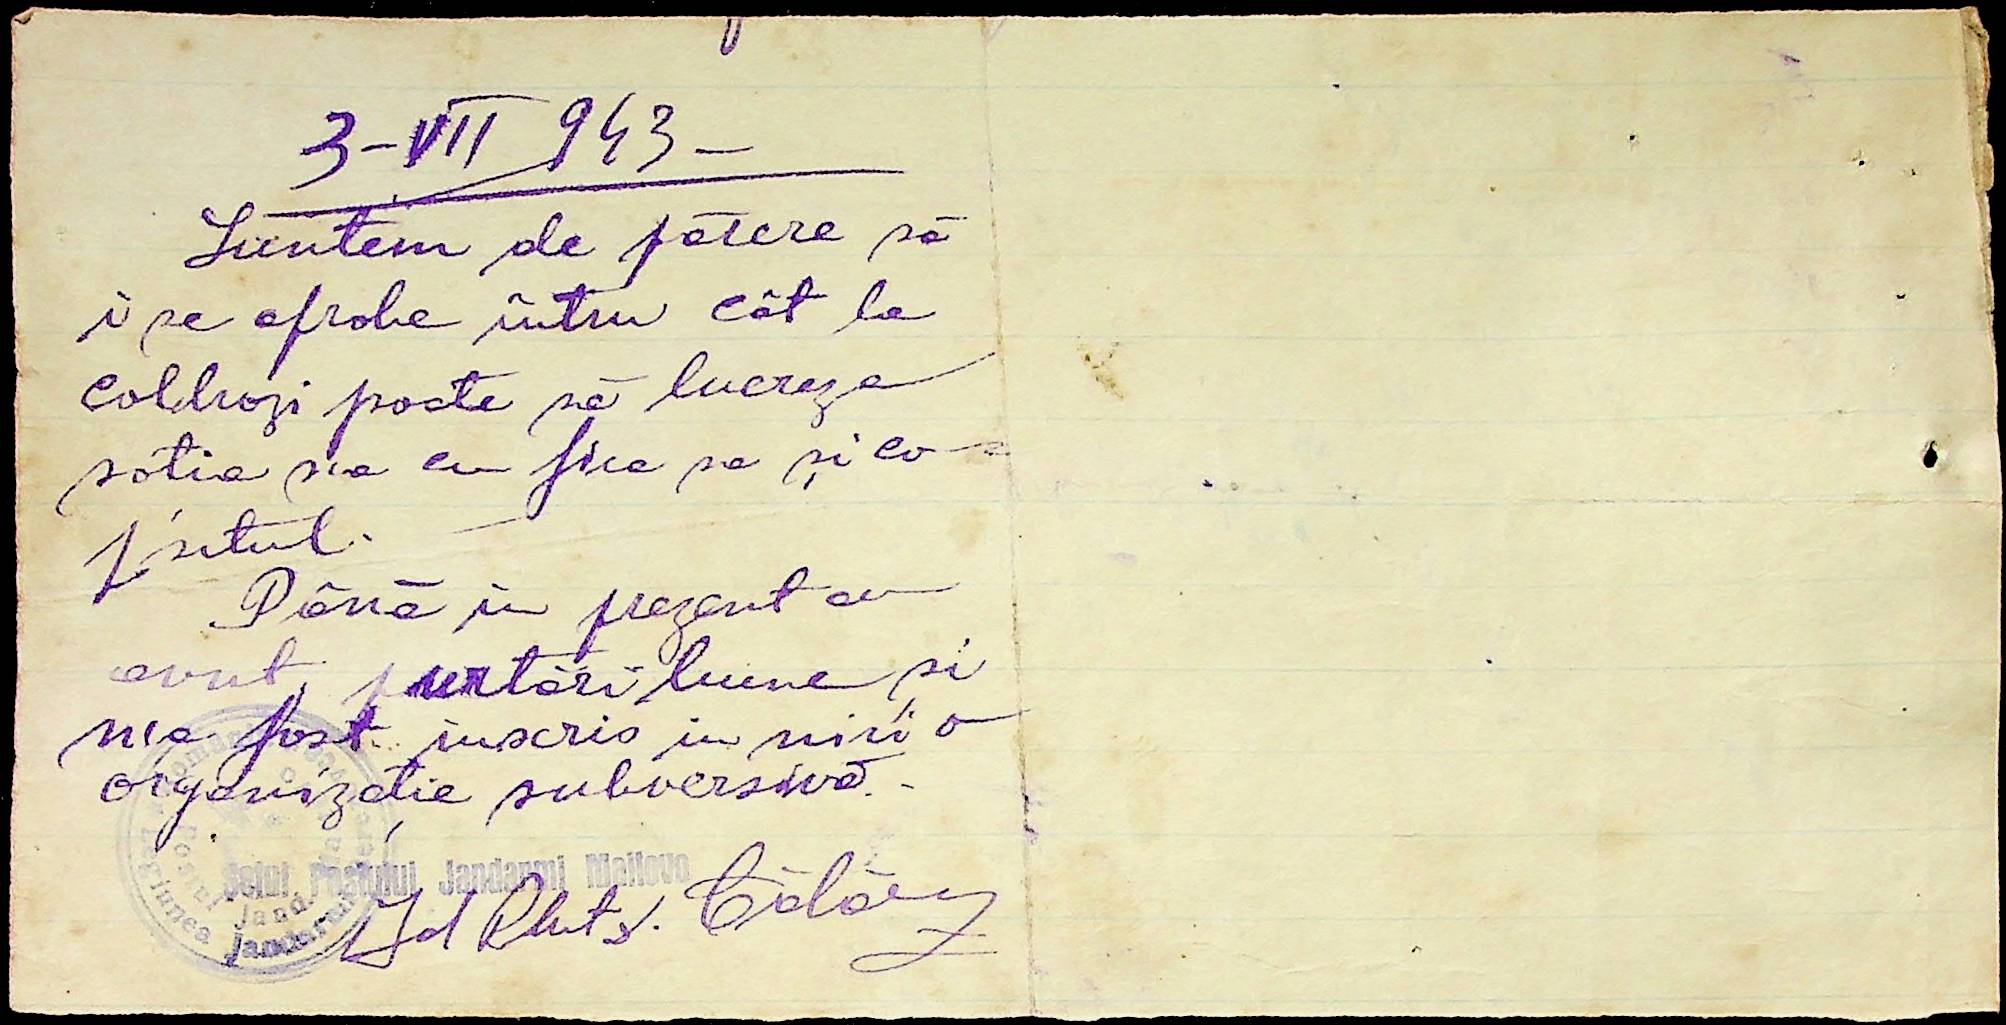 3-VII 943-
Suntem de părere să
i se aprobe întru cât la
Coldrozi poate să lucreze
sotia sa cu fica sa și co-
pisetul.
Până în prezent au
avut purtări bune si
n'a fost înscris in nici o
organizatie subversivă.-
Șeful Postului Jandarmi Mailovo
Legiunea Jandarmi
Postul Jand.